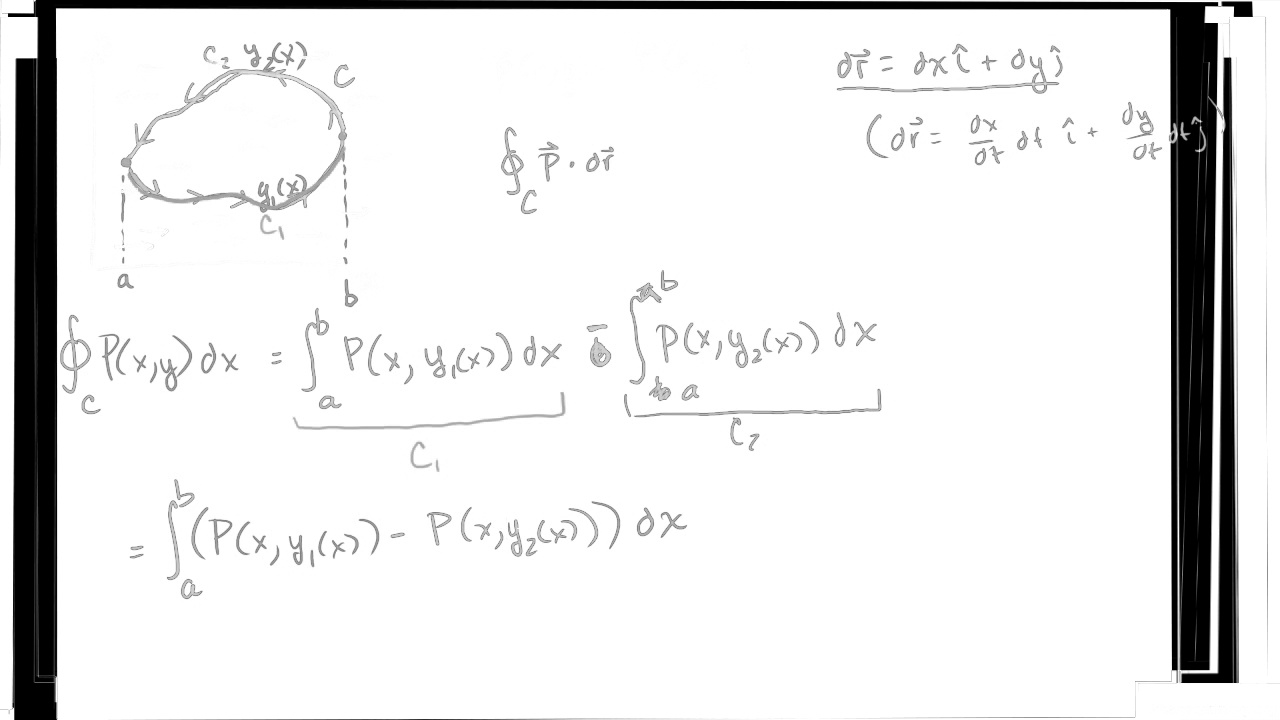 C₂ y₂(x)
C
y₁(x)
C₁
a
b
dr⃗ = dx î + dy ĵ
(dr⃗ = dx/dt dt î + dy/dt dt ĵ)
∮_C P⃗ · dr⃗
∮_C P(x,y) dx = ∫_a^b P(x, y₁(x)) dx - ∫_a^b P(x, y₂(x)) dx
C₁
C₂
= ∫_a^b (P(x, y₁(x)) - P(x, y₂(x))) dx